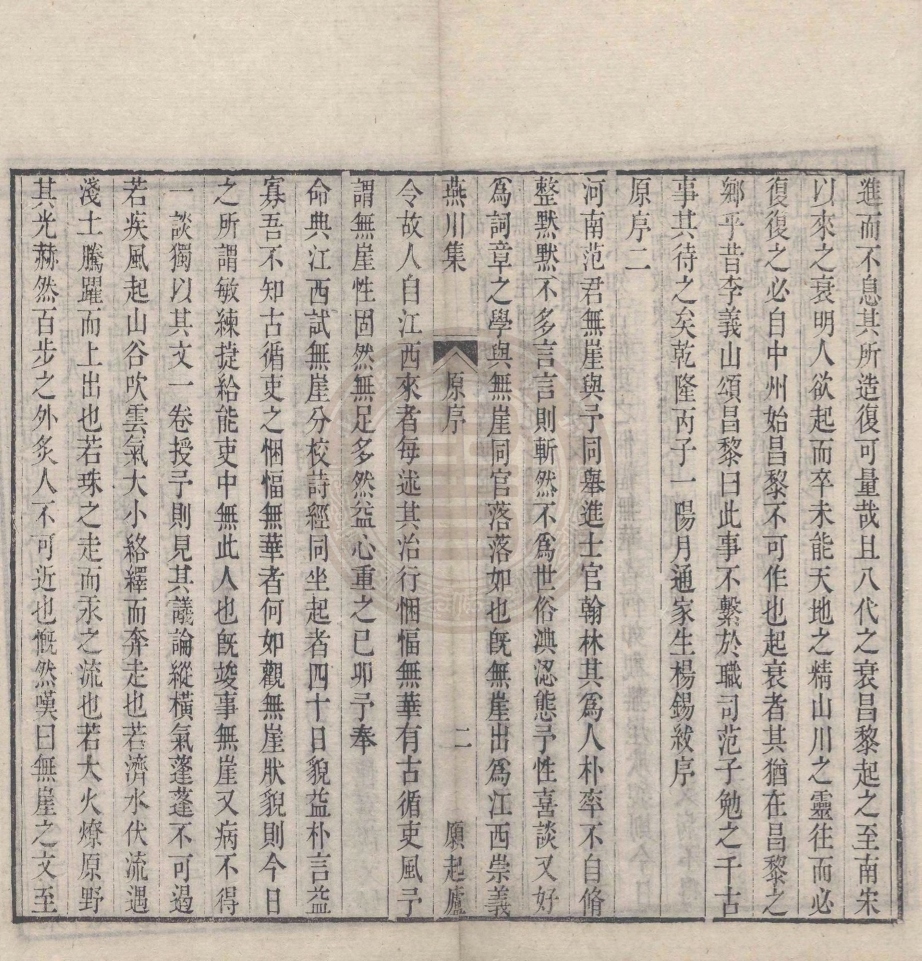 進而不息其所造復可量哉且八代之衰昌黎起之至南宋
以來之衰明人欲起而卒未能天地之精山川之靈往而必
復復之必自中州始昌黎不可作也起衰者其猶在昌黎之
鄉乎昔李義山頌昌黎曰此事不繫於職司范子勉之千古
事其待之矣乾隆丙子一陽月通家生楊錫紱序
原序二
河南范君無崖與予同舉進士官翰林其爲人朴率不自脩
整默默不多言言則斬然不爲世俗淟涊態予性喜談又好
爲詞章之學與無崖同官落落如也旣無崖出爲江西崇義
燕川集 原序 二 願起廬
令故人自江西來者每述其冶行悃愊無華有古循吏風予
謂無崖性固然無足多然益心重之已卯予奉
命典江西試無崖分校詩經同坐起者四十日貌益朴言益
寡吾不知古循吏之悃愊無華者何如觀無崖狀貌則今日
之所謂敏練捷給能吏中無此人也旣竣事無崖又病不得
一談獨以其文一卷授予則見其議論縱橫氣蓬蓬不可遏
若疾風起山谷吹雲氣大小絡繹而奔走也若濟水伏流遇
淺土騰躍而上出也若珠之走而汞之流也若大火燎原野
其光赫然百步之外炙人不可近也慨然嘆曰無崖之文至